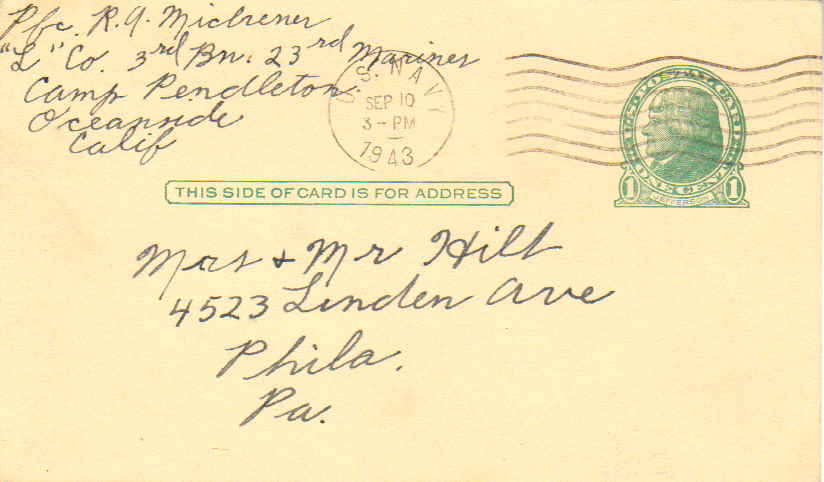 Pfc. R. A. Michener
"L" Co. 3rd Bn. 23rd Marines
Camp Pendleton
Oceanside
Calif
U.S. NAVY
SEP 10
3 - PM
1943
THIS SIDE OF CARD IS FOR ADDRESS
U.S. POSTAL CARD
1 ONE CENT 1
JEFFERSON
Mrs + Mr Hilt
4523 Linden Ave
Phila.
Pa.